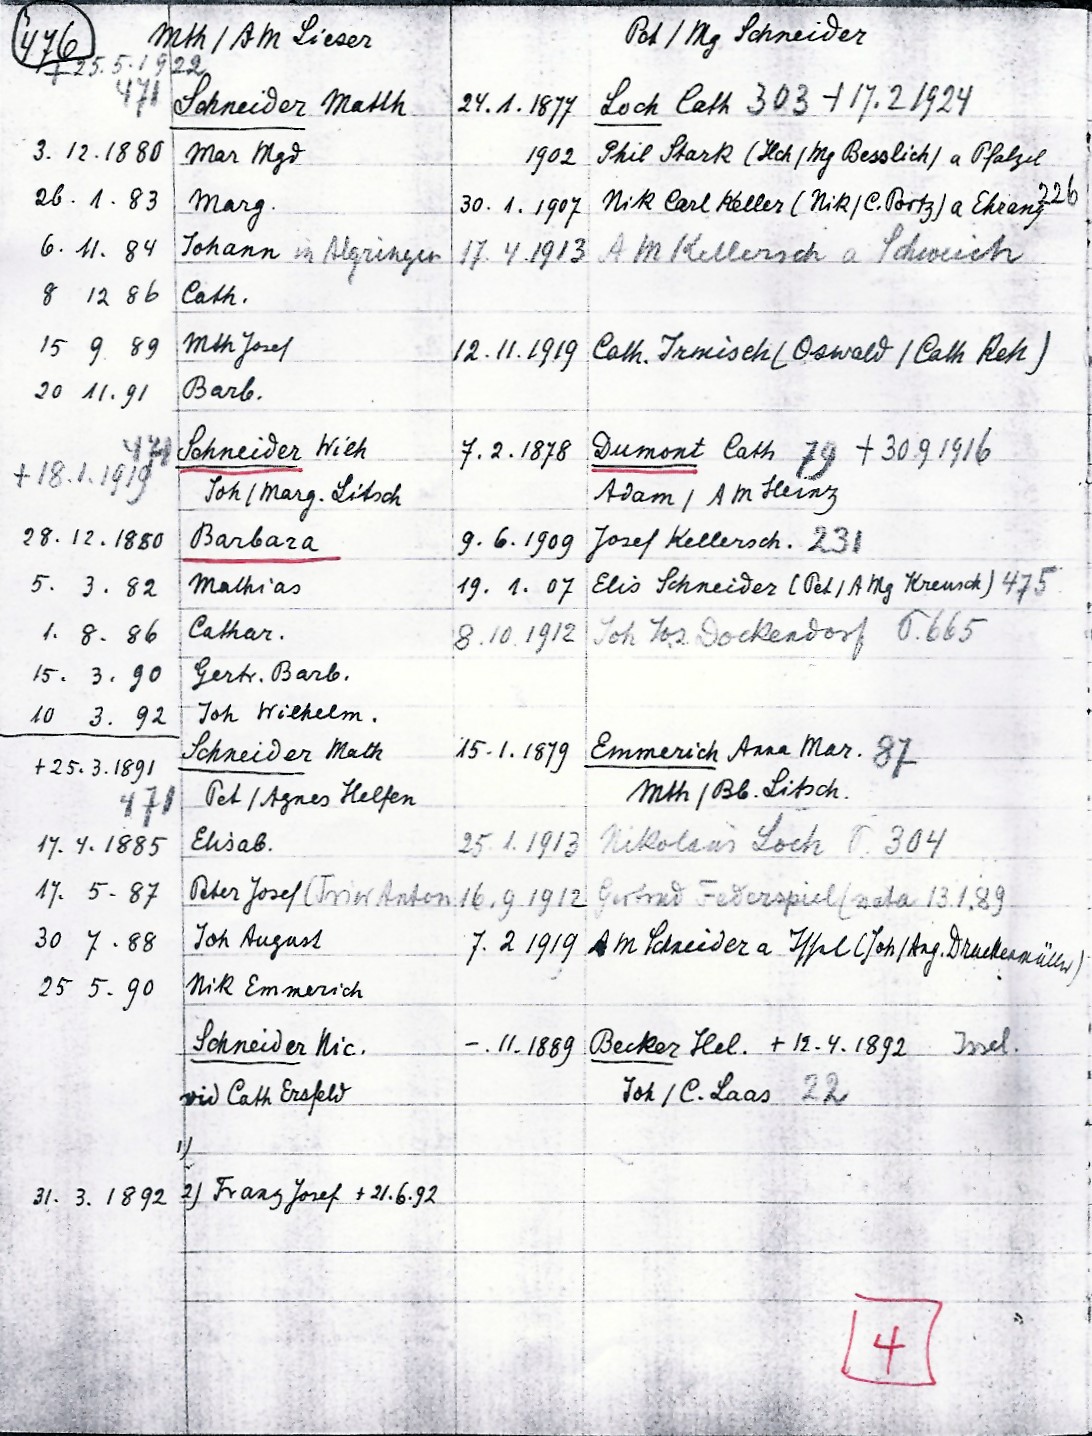 476 Mth / AM Lieser Pet / Mg Schneider
+25.5.1922
471 Schneider Matth 24.1.1877 Loch Cath 303 +17.2 1924
3. 12. 1880 Mar Mgd 1902 Phil Stark (Hch / Mg Besslich) a Pfalzel
26. 1. 83 Marg. 30. 1. 1907 Nik Carl Keller (Nik / C. Botz) a Ehrang 226
6. 11. 84 Johann in Algringen 17. 4. 1913 A M Kellersch a Schweich
8 12 86 Cath.
15 9 89 Mth Josef 12. 11. 1919 Cath. Irmisch (Oswald / Cath Reh)
20 11. 91 Barb.
471 Schneider Wilh 7. 2. 1878 Dumont Cath 79 +30 9 1916
+18.1.1919 Joh / Marg. Litsch Adam / A M Heinz
28. 12. 1880 Barbara 9. 6. 1909 Josef Kellersch. 231
5. 3. 82 Mathias 19. 1. 07 Elis Schneider (Pet / A Mg Kreusch) 475
1. 8. 86 Cathar. 8. 10. 1912 Joh Jos. Dockendorf 665
15. 3. 90 Gertr. Barb.
10 3. 92 Joh Wilhelm.
+25. 3. 1891 Schneider Math 15. 1. 1879 Emmerich Anna Mar. 87
471 Pet / Agnes Helfen Mth / Bb. Litsch.
17. 4. 1885 Elisab. 25. 1. 1913 Nikolaus Loch 304
17. 5- 87 Peter Josef (Trier Anton 16. 9 1912 Gertrud Federspiel (nata 13.1.89
30 7. 88 Joh August 7. 2 1919 A M Schneider a Issel (Joh / Ang. Druckenmüller)
25 5. 90 Nik Emmerich
Schneider Nic. -. 11. 1889 Becker Hel. +12. 4. 1892 Issel.
vid Cath Ersfeld Joh / C. Laas 22
1)
31. 3. 1892 2) Franz Josef +21.6.92
4